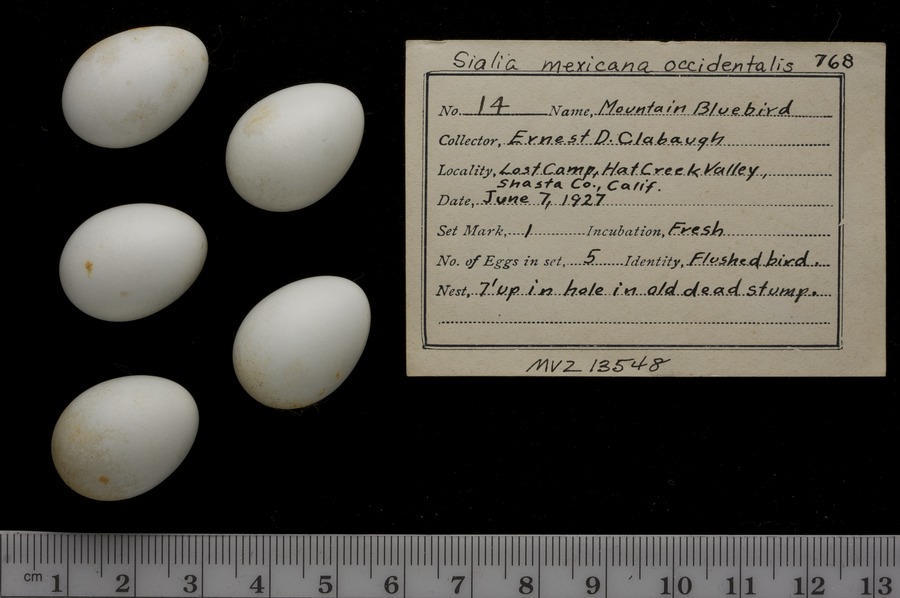 Sialia mexicana occidentalis 768
No. 14 Name, Mountain Bluebird
Collector, Ernest D. Clabaugh
Locality, Lost Camp, Hat Creek Valley,
Shasta Co., Calif.
Date, June 7, 1927
Set Mark, 1 Incubation, Fresh
No. of Eggs in set, 5 Identity, Flushed bird.
Nest, 7' up in hole in old dead stump.
MVZ 13548
cm 1 2 3 4 5 6 7 8 9 10 11 12 13